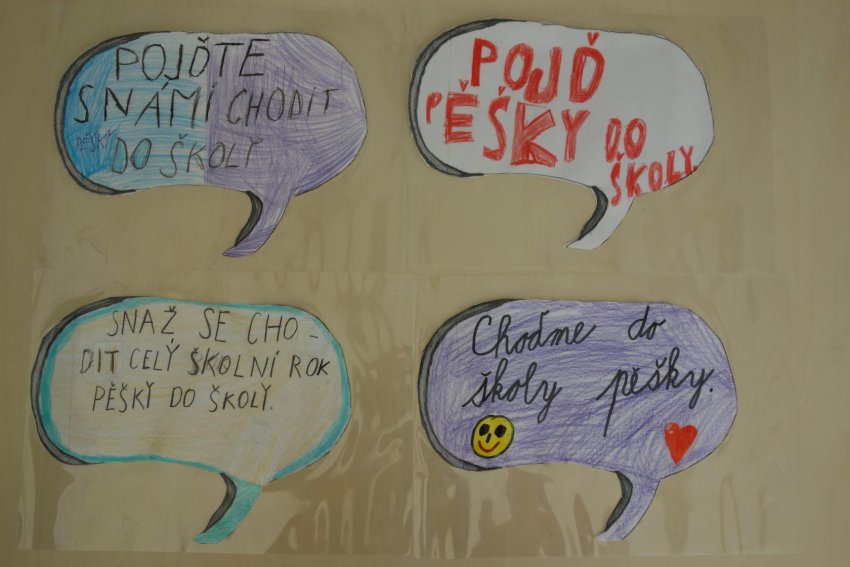 POJĎTE
S NÁMI CHODIT
PĚŠKY DO ŠKOLY
POJĎ
PĚŠKY DO
ŠKOLY
SNAŽ SE CHO-
DIT CELÝ ŠKOLNÍ ROK
PĚŠKY DO ŠKOLY.
Choďme do
školy pěšky.